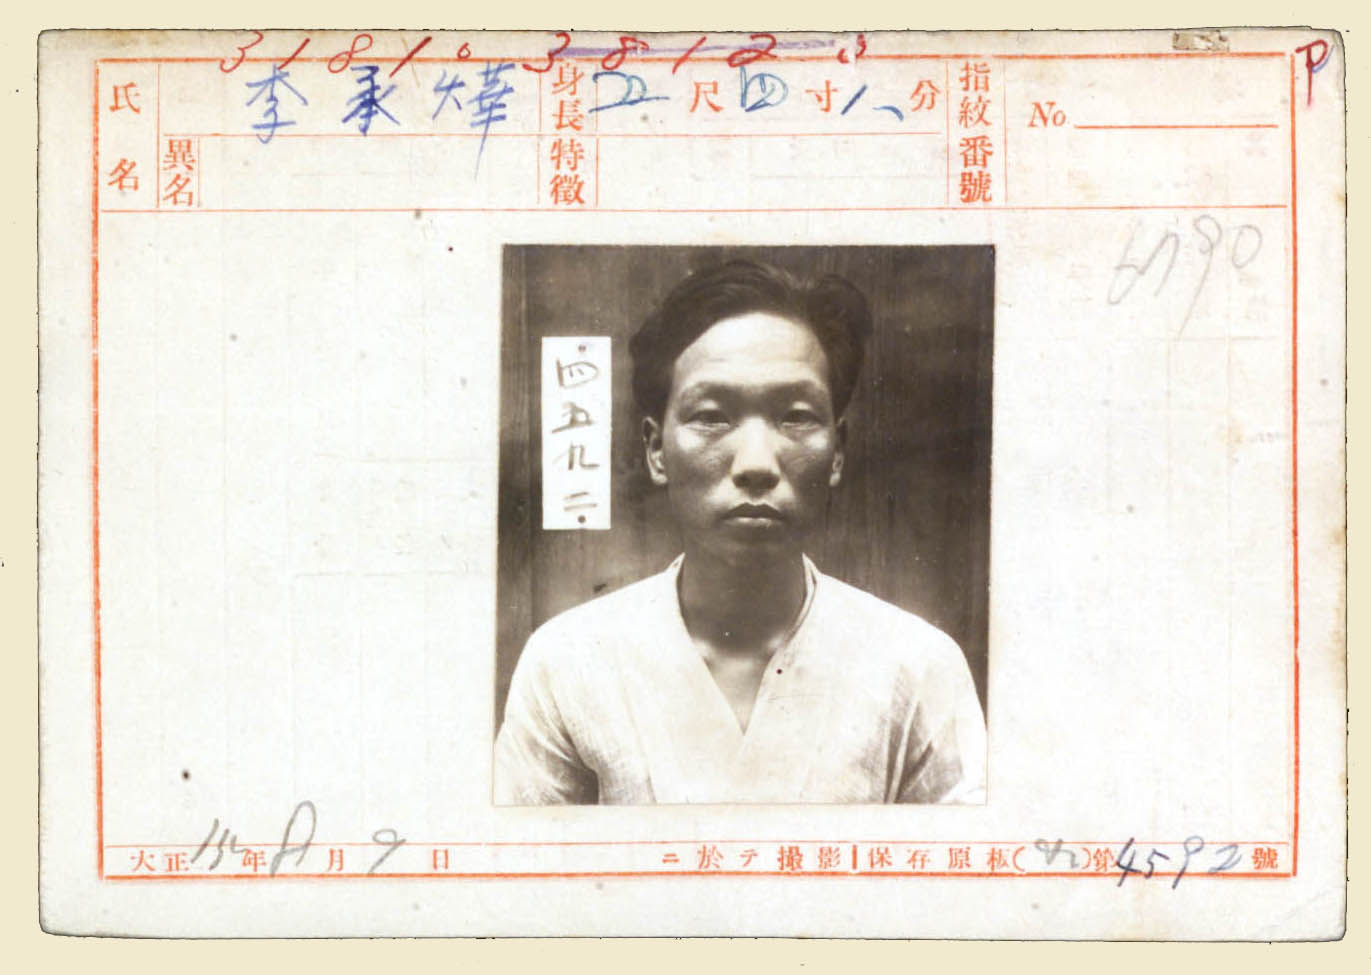 31810 3812
氏名 李承燁 身長 五尺四寸八分 指紋番號 No
異名 特徵
6790
四五九二
大正 年8月9日 ニ於テ撮影 保存原板( )第4592號